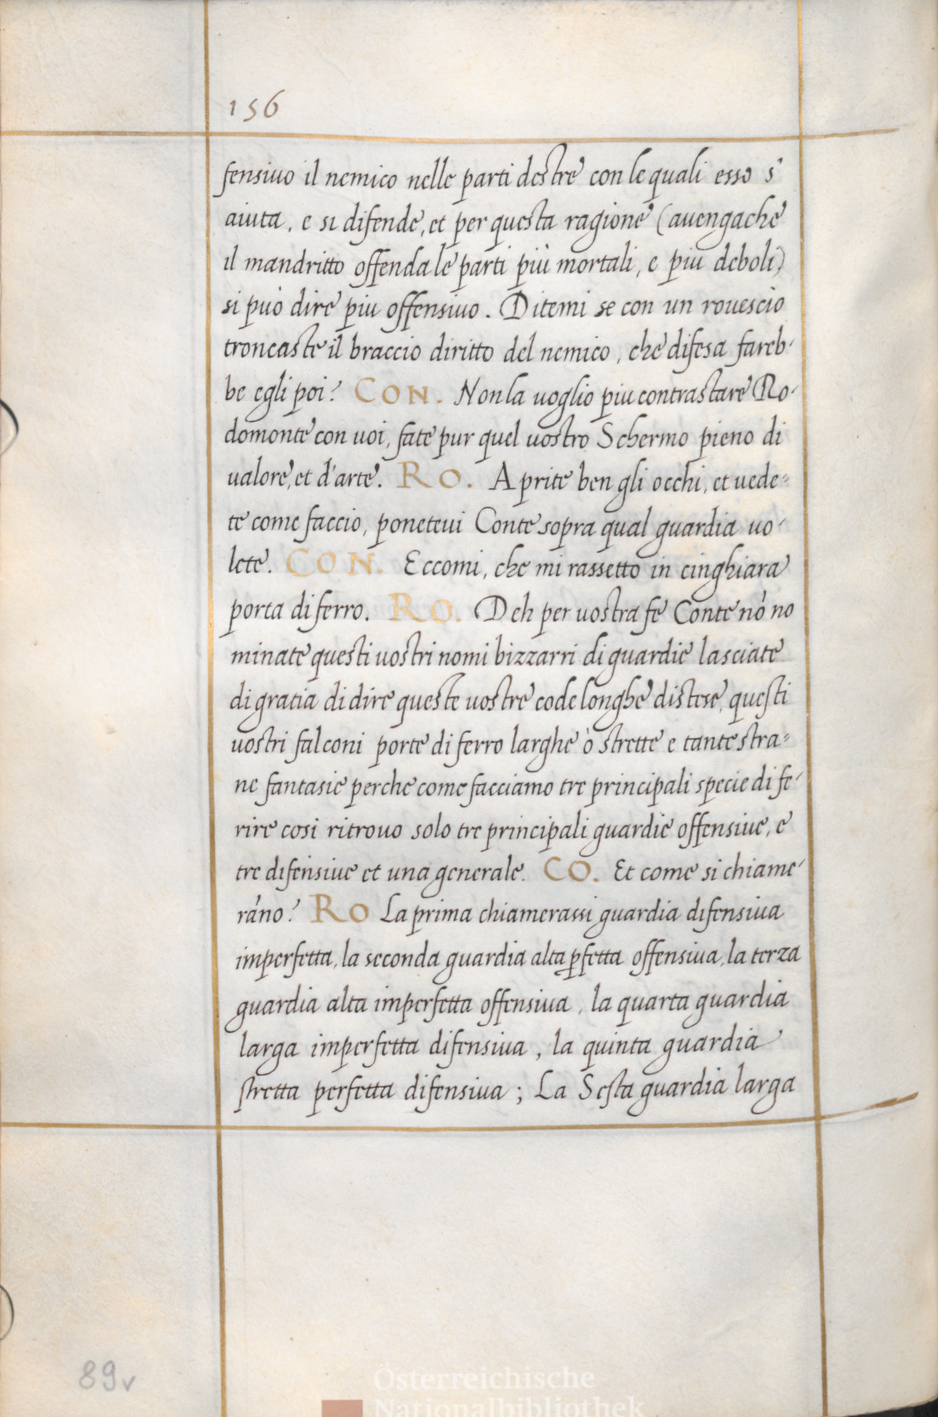 156
fensiuo il nemico nelle parti destre con le quali esso s'
aiuta, e si difende, et per questa ragione (auengache
il mandritto offenda le parti più mortali, e piu deboli)
si può dire piu offensiuo. Ditemi se con un rouescio
troncaste il braccio diritto del nemico, che difesa fareb-
be egli poi? CON. Non la uoglio piu contrastare Ro-
domonte con uoi, fate pur quel uostro Schermo pieno di
ualore, et d'arte. RO. Aprite ben gli occhi, et uede=
te come faccio, poneteui Conte sopra qual guardia uo-
lete. CON. Eccomi, che mi rassetto in cinghiara
porta di ferro. RO. Deh per uostra fe Conte nō no
minate questi uostri nomi bizzarri di guardie lasciate
di gratia di dire queste uostre code longhe distese, questi
uostri falconi porte di ferro larghe ò strette e tante stra=
ne fantasie perche come facciamo tre principali specie di fe-
rire cosi ritrouo solo tre principali guardie offensiue, e
tre difensiue et una generale. CO. Et come si chiame-
rāno? RO La prima chiamerassi guardia difensiua
imperfetta, la seconda guardia alta ꝑfetta offensiua, la terza
guardia alta imperfetta offensiua, la quarta guardia
larga imperfetta difensiua, la quinta guardia
stretta perfetta difensiua; La Sesta guardia larga
89v
Österreichische
Nationalbibliothek